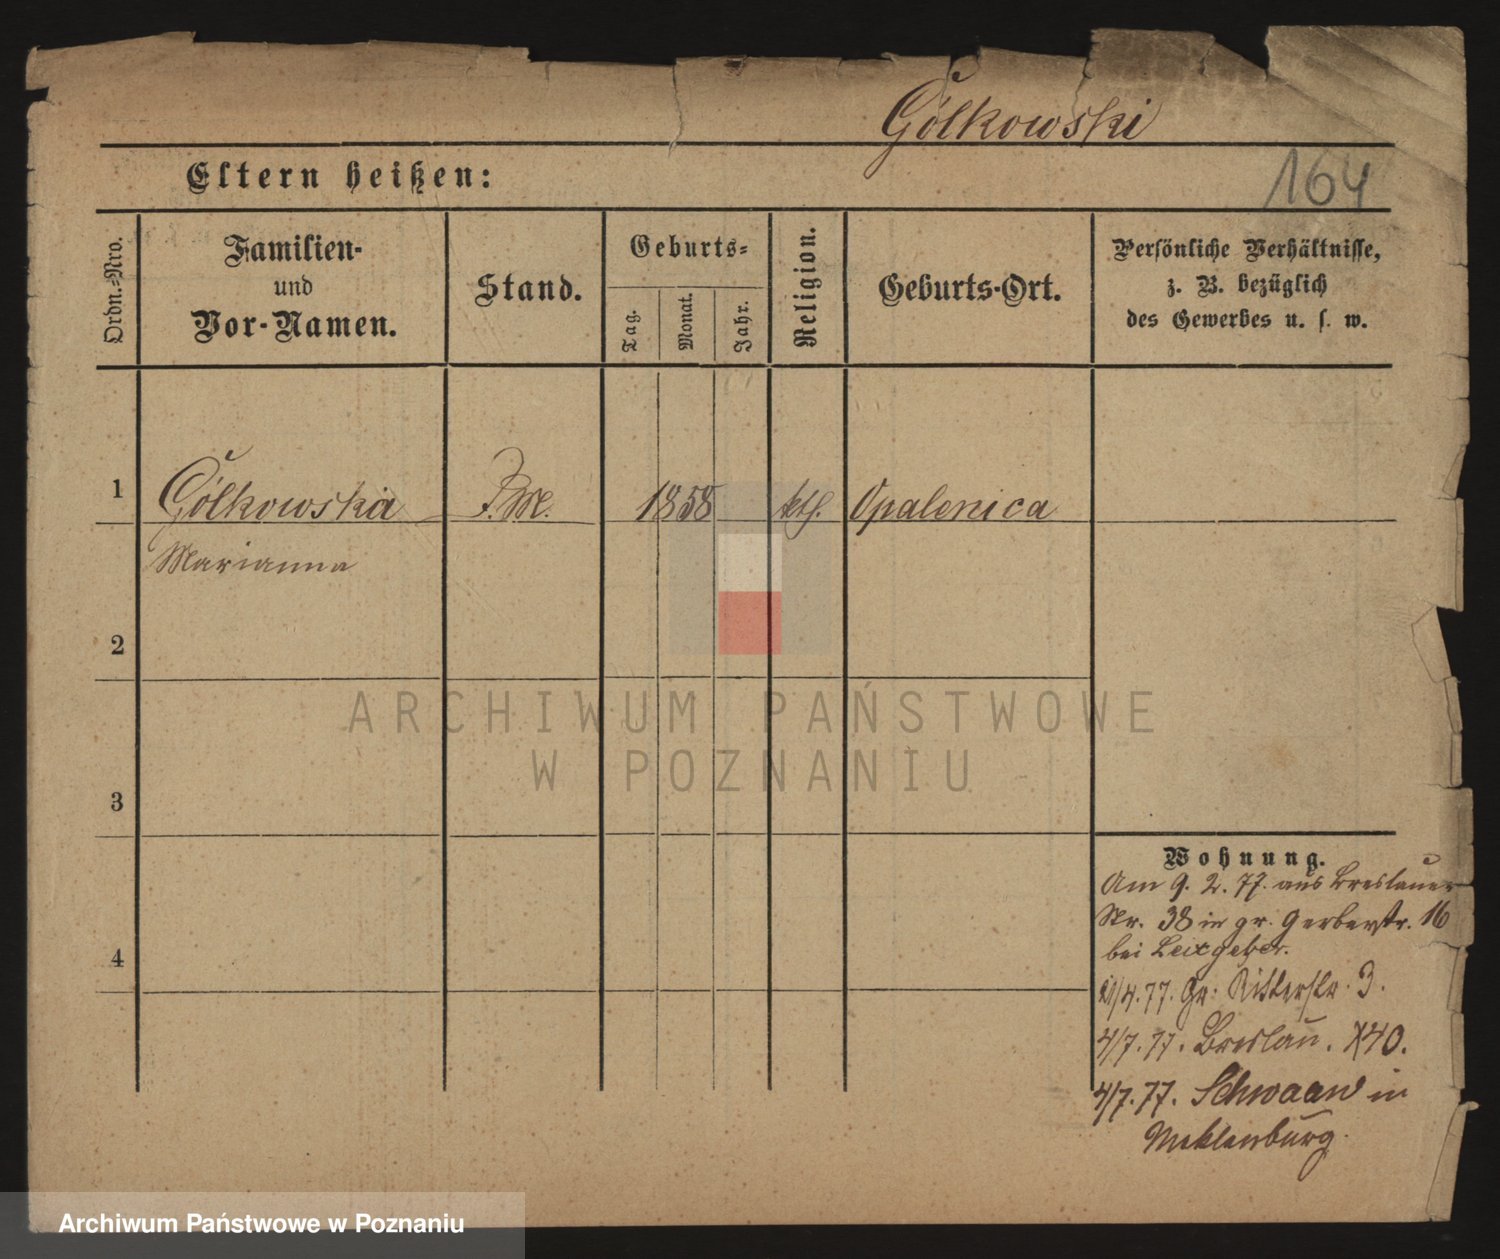 Gólkowski
164
Eltern heißen:
Ordn.-Nro.
Familien-
und
Vor-Namen.
Stand.
Geburts-
Tag.
Monat.
Jahr.
Religion.
Geburts-Ort.
Persönliche Verhältnisse,
z. B. bezüglich
des Gewerbes u. s. w.
1 Gólkowska 1858 kth. Opalenica
Marianna
2
ARCHIWUM PAŃSTWOWE
W POZNANIU
3
Wohnung.
Am 9. 2. 77. aus Breslauer
Str. 38 in gr. Gerberstr. 16
bei Leitgeber.
4
/4.77. Gr: Ritterstr. 3.
4/7.77. Breslau. 40.
4/7.77. Schwaan in
Meklenburg.
Archiwum Państwowe w Poznaniu